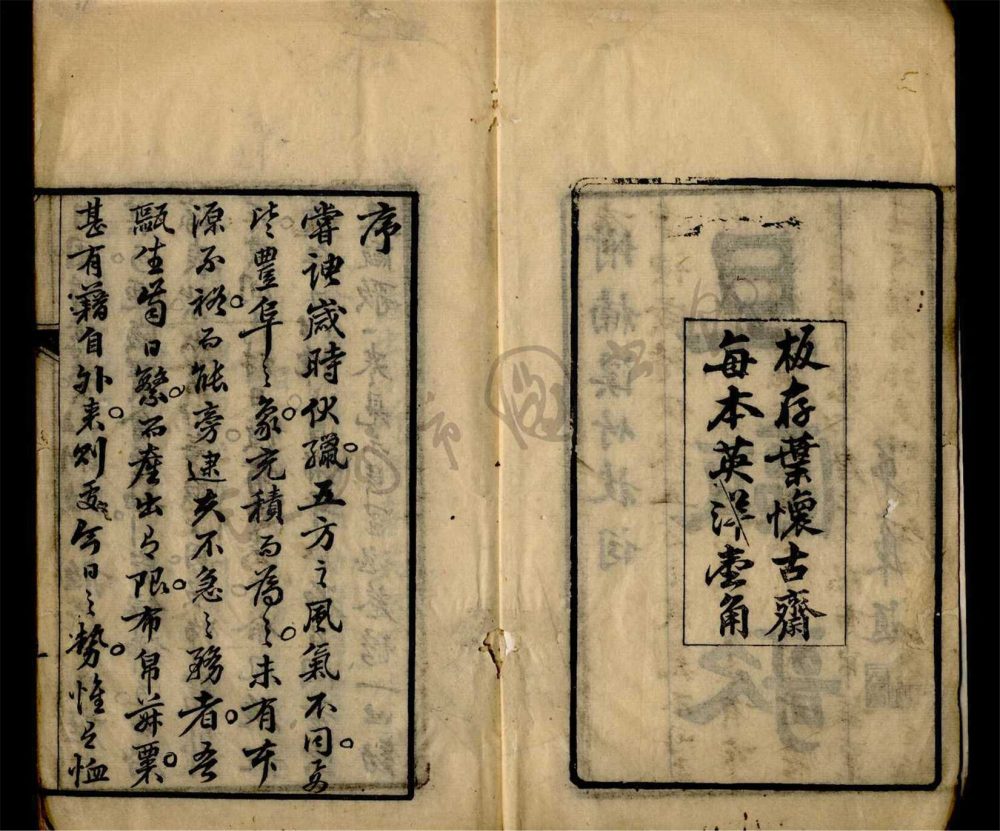 板存葉懷古齋
每本英洋壹角
序
嘗歲時伏臘。五方之風氣不同。要
皆豐阜之象。充積而為之。未有本
源不裕。而能旁逮夫不急之務者。吾
甌生齒日繁。而產出有限。布帛菽粟。
甚有藉自外來。則處今日之勢。惟是恤